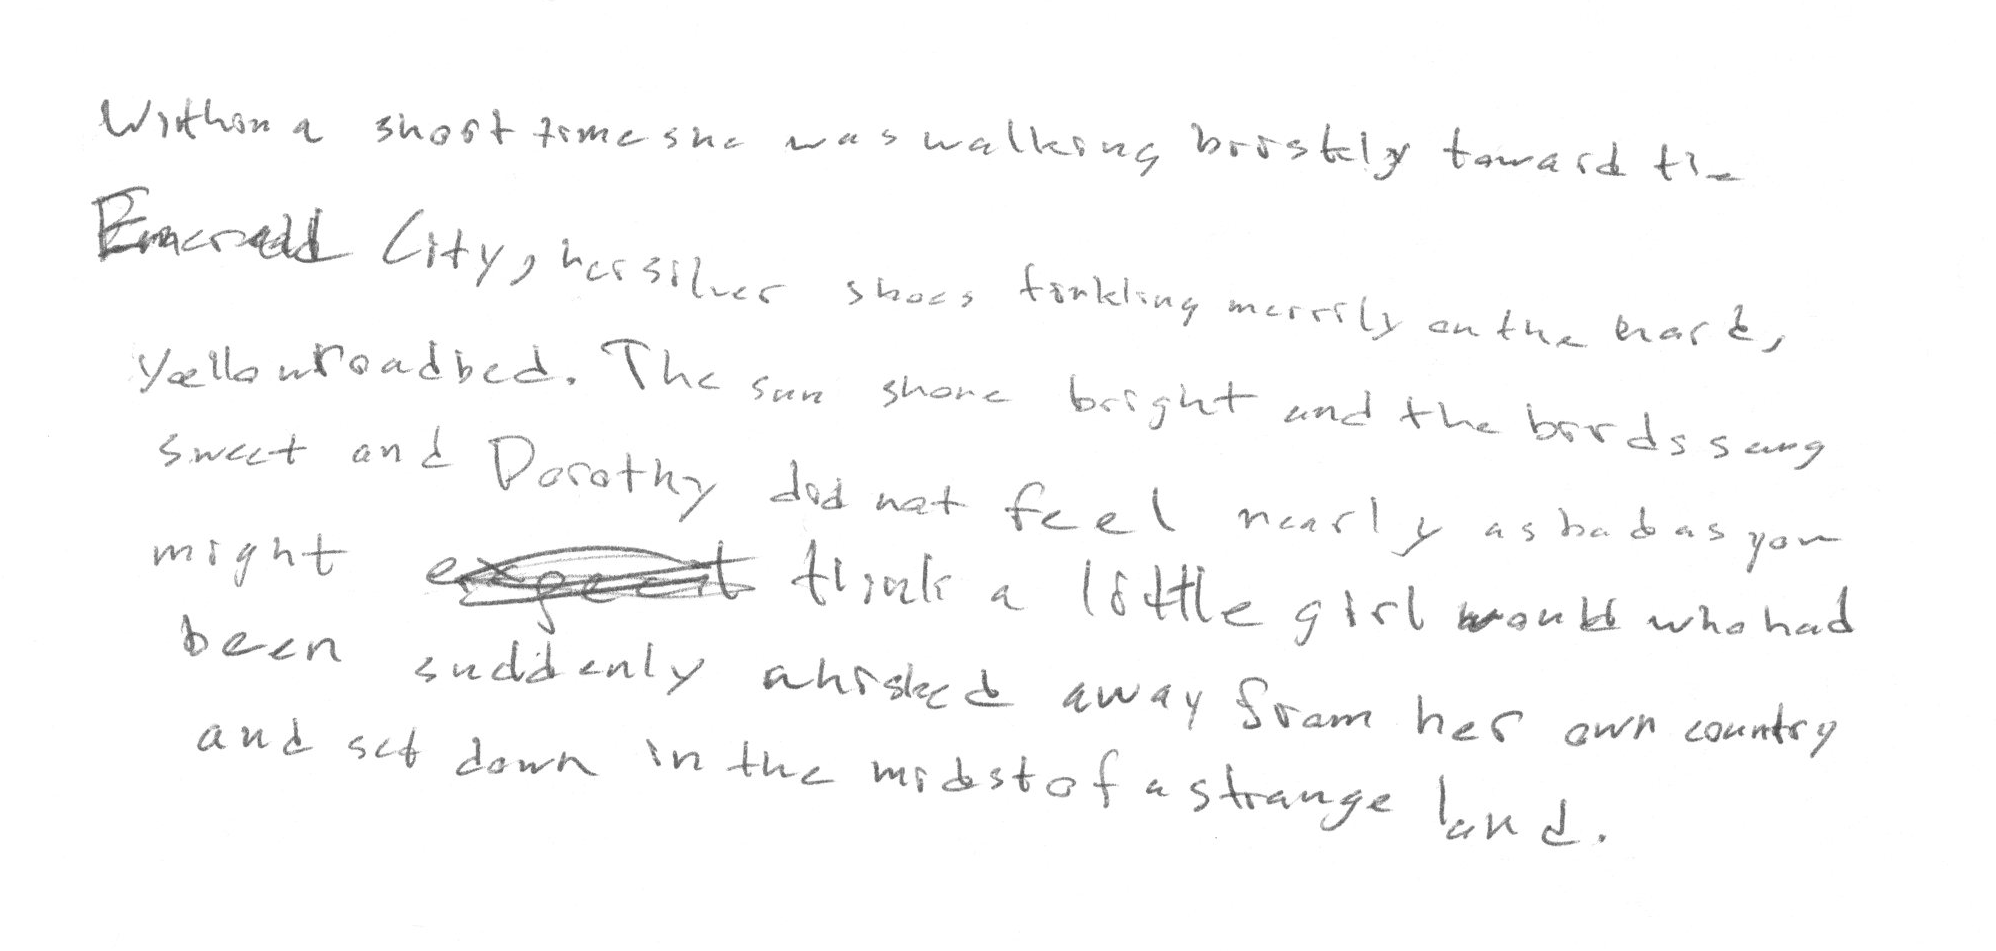 Within a short time she was walking briskly toward the
Emerald City, her silver shoes tinkling merrily on the hard,
yellow roadbed. The sun shone bright and the birds sang
sweet and Dorothy did not feel nearly as bad as you
might expect think a little girl would who had
been suddenly whisked away from her own country
and set down in the midst of a strange land.